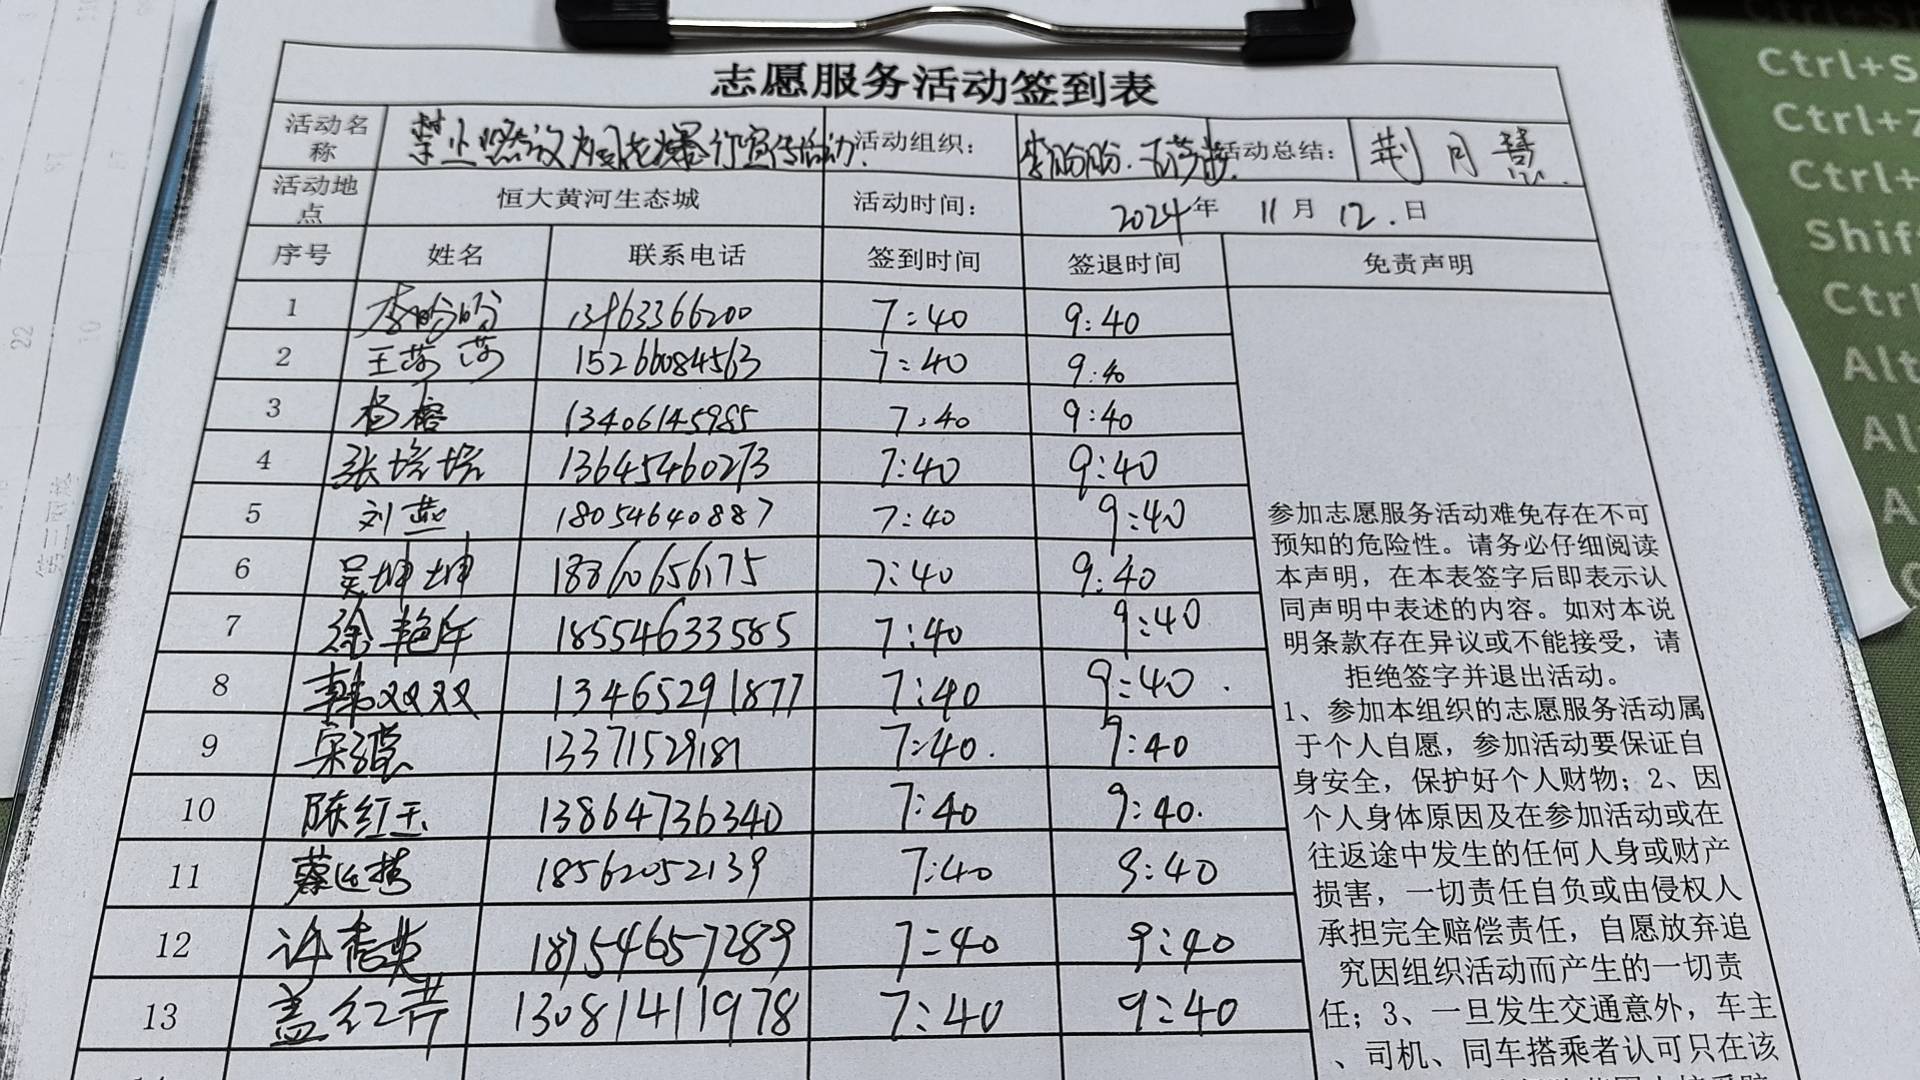 志愿服务活动签到表
活动名称 禁止燃放烟花爆竹宣传活动. 活动组织: 李盼盼. 王莎莎. 活动总结: 荆月慧.
活动地点 恒大黄河生态城 活动时间: 2024年 11月 12.日
序号 姓名 联系电话 签到时间 签退时间 免责声明
1 李盼盼 13963366200 7:40 9:40
2 王莎莎 15266084563 7:40 9:40
3 杨榕 13406145985 7:40 9:40
4 张培培 13645460273 7:40 9:40
5 刘燕 18054640887 7:40 9:40
6 吴坤坤 18860656175 7:40 9:40
7 徐艳午 18554633585 7:40 9:40
8 韩双双 13465291877 7:40 9:40.
9 宋 13371529181 7:40. 9:40
10 陈红玉 13864736340 7:40 9:40.
11 蔡 18562052139 7:40 9:40
12 许秀英 18754657289 7:40 9:40
13 盖红芹 13081411978 7:40 9:40
参加志愿服务活动难免存在不可
预知的危险性。请务必仔细阅读
本声明，在本表签字后即表示认
同声明中表述的内容。如对本说
明条款存在异议或不能接受，请
拒绝签字并退出活动。
1、参加本组织的志愿服务活动属
于个人自愿，参加活动要保证自
身安全，保护好个人财物；2、因
个人身体原因及在参加活动或在
往返途中发生的任何人身或财产
损害，一切责任自负或由侵权人
承担完全赔偿责任，自愿放弃追
究因组织活动而产生的一切责
任；3、一旦发生交通意外，车主
、司机、同车搭乘者认可只在该
Ctrl+S
Ctrl+Z
Ctrl+
Shif
Ctrl
Alt
Al
A
22
10